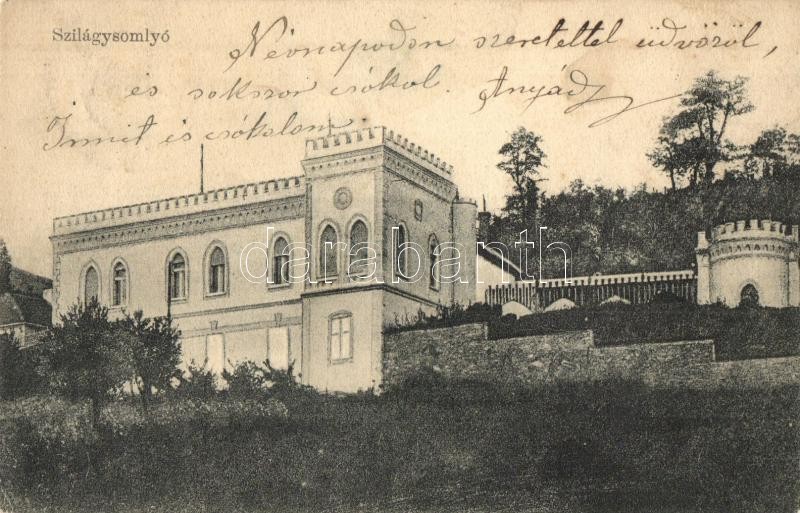 Szilágysomlyó
Névnapodon szeretettel üdvözöl,
és sokszor csókol. Anyád
Irmit és csókolom
darabanth